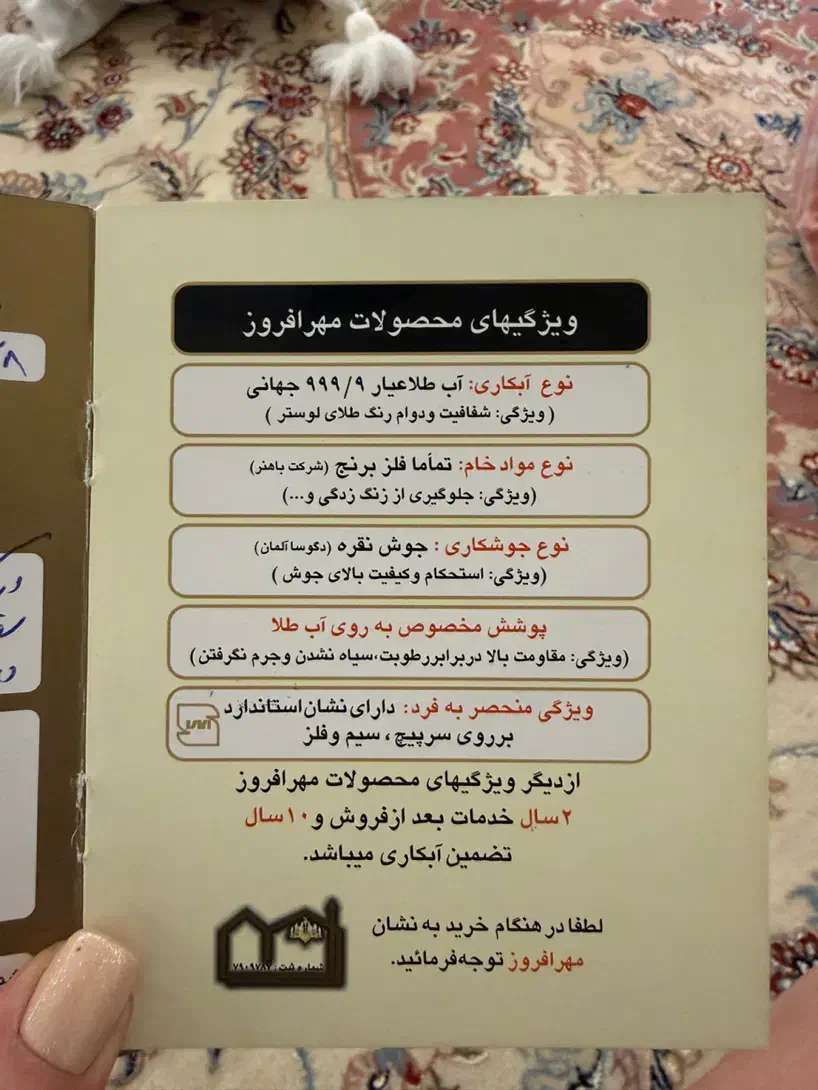 ویژگیهای محصولات مهرافروز
نوع آبکاری: آب طلاعیار ۹۹۹/۹ جهانی
( ویژگی: شفافیت ودوام رنگ طلای لوستر )
نوع مواد خام: تمأما فلز برنج (شرکت باهنر)
(ویژگی: جلوگیری از زنگ زدگی و...)
نوع جوشکاری : جوش نقره (دگوسا آلمان)
(ویژگی: استحکام وکیفیت بالای جوش )
پوشش مخصوص به روی آب طلا
(ویژگی: مقاومت بالا دربرابررطوبت،سیاه نشدن وجرم نگرفتن)
ویژگی منحصر به فرد: دارای نشان استاندارد
برروی سرپیچ ، سیم وفلز
ازدیگر ویژگیهای محصولات مهرافروز
۲سال خدمات بعد ازفروش و۱۰سال
تضمین آبکاری میباشد.
لطفا در هنگام خرید به نشان
مهرافروز توجه‌فرمائید.
شماره ثبت : ۷۹۰۹۷۸۷